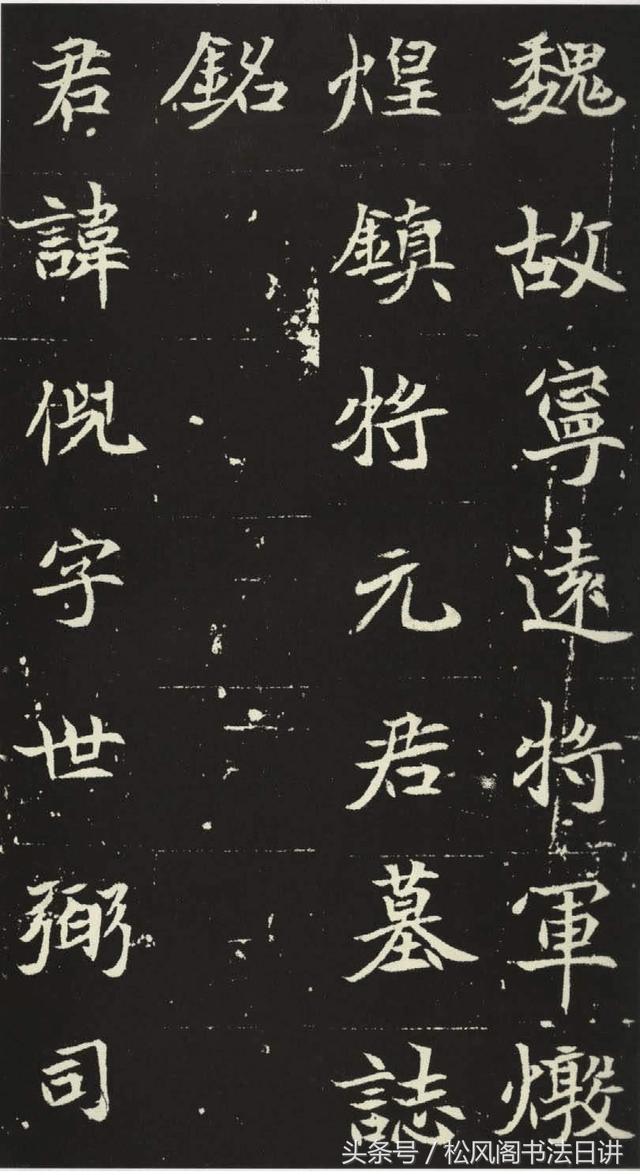 魏故寧遠將軍燉
煌鎮將元君墓誌
銘
君諱倪字世弼司
头条号/松风阁书法日讲